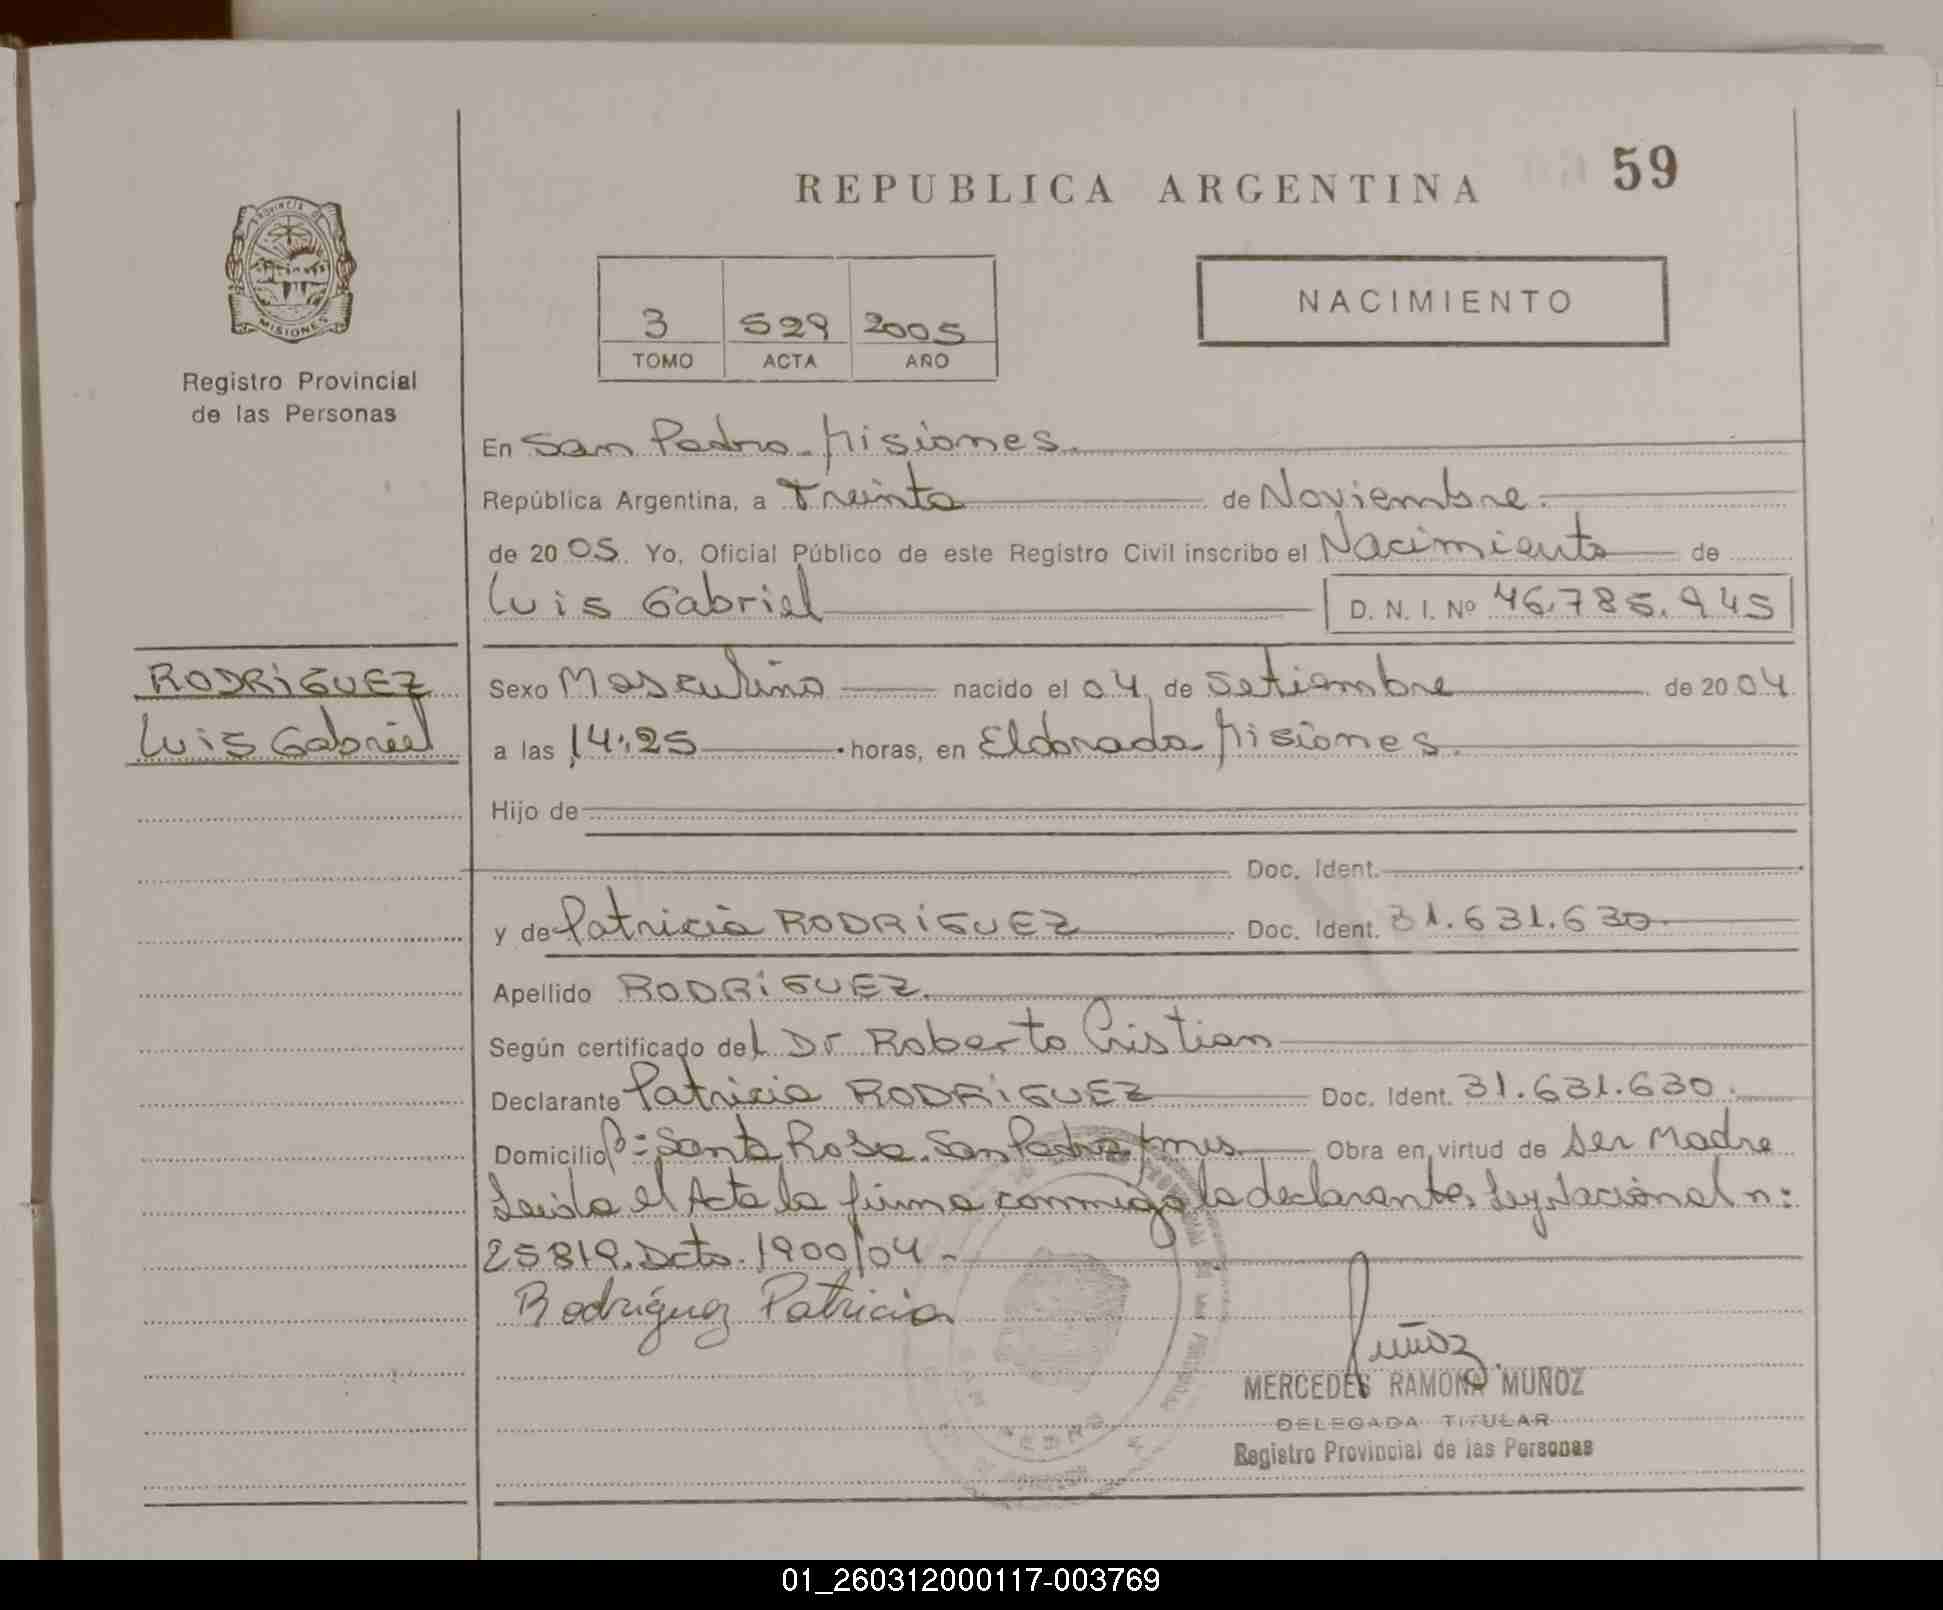 REPUBLICA ARGENTINA 59
PROVINCIA DE
MISIONES
Registro Provincial
de las Personas
3 529 2005
TOMO ACTA AÑO
NACIMIENTO
En San Pedro. Misiones.
República Argentina, a Treinta de Noviembre.
de 20 05. Yo, Oficial Público de este Registro Civil inscribo el Nacimiento de
Luis Gabriel D. N. I. Nº 46.785.945
RODRÍGUEZ
Luis Gabriel
Sexo Masculino nacido el 04, de Setiembre de 20 04.
a las 14:25 horas, en Eldorado Misiones.
Hijo de
Doc. Ident.
y de Patricia RODRÍGUEZ Doc. Ident. 31.631.630.
Apellido RODRÍGUEZ.
Según certificado del Dr Roberto Cristian
Declarante Patricia RODRÍGUEZ Doc. Ident. 31.631.630.
Domicilio Pº: Santa Rosa. San Pedro, mnes. Obra en virtud de Ser Madre
Leida el Acta la firma conmigo la declarante. Ley Nacional n:
25819. Dcto. 1900/04.-
Rodríguez Patricia
Muñoz.
MERCEDES RAMONA MUÑOZ
DELEGADA TITULAR
Registro Provincial de las Personas
01_260312000117-003769